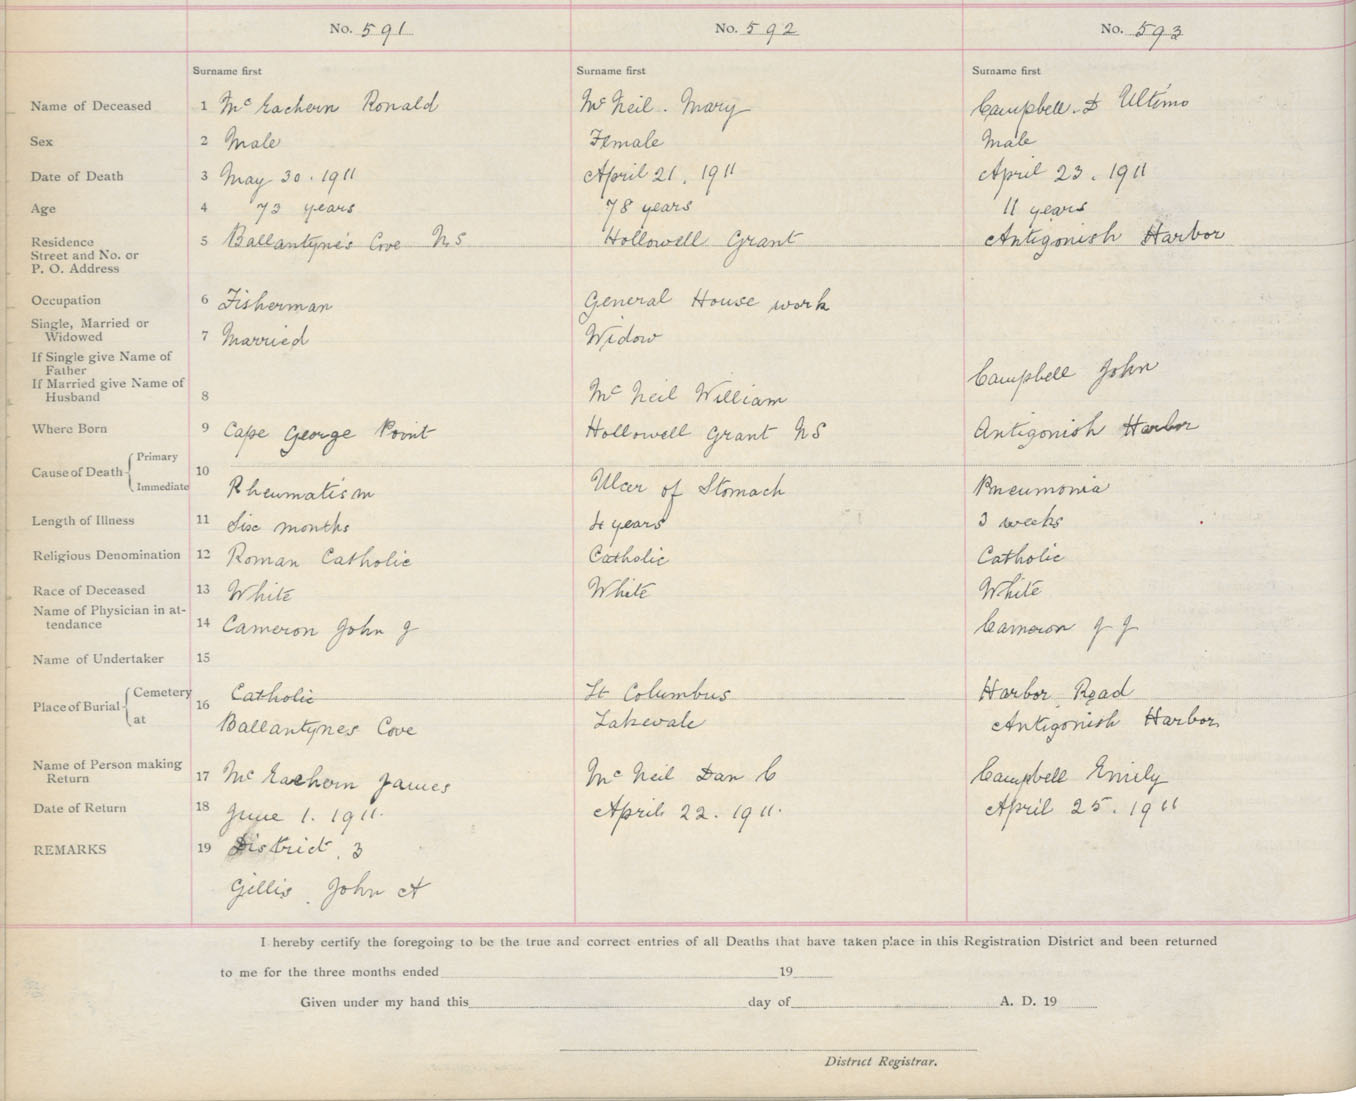 No. 591 No. 592 No. 593
Surname first Surname first Surname first
Name of Deceased 1 Mc Eachern Ronald Mc Neil. Mary Campbell. D Ultimo
Sex 2 Male Female Male
Date of Death 3 May 30. 1911 April 21. 1911 April 23. 1911
Age 4 73 years 78 years 11 years
Residence
Street and No. or
P. O. Address 5 Ballantyne's Cove N S Hollowell Grant Antigonish Harbor
Occupation 6 Fisherman General House work
Single, Married or
Widowed 7 Married Widow
If Single give Name of
Father Campbell John
If Married give Name of
Husband 8 Mc Neil William
Where Born 9 Cape George Point Hollowell Grant N S Antigonish Harbor
Cause of Death Primary
10
Immediate Rheumatism Ulcer of Stomach Pneumonia
Length of Illness 11 Six months 4 years 3 weeks
Religious Denomination 12 Roman Catholic Catholic Catholic
Race of Deceased 13 White White White
Name of Physician in at-
tendance 14 Cameron John J Cameron J J
Name of Undertaker 15
Place of Burial Cemetery 16 Catholic St Columbus Harbor Road
at Ballantynes Cove Lakevale Antigonish Harbor
Name of Person making
Return 17 Mc Eachern James Mc Neil Dan C Campbell Emily
Date of Return 18 June 1. 1911. April 22. 1911. April 25. 1911
REMARKS 19 District. 3
Gillis. John A
I hereby certify the foregoing to be the true and correct entries of all Deaths that have taken place in this Registration District and been returned
to me for the three months ended 19
Given under my hand this day of A. D. 19
District Registrar.